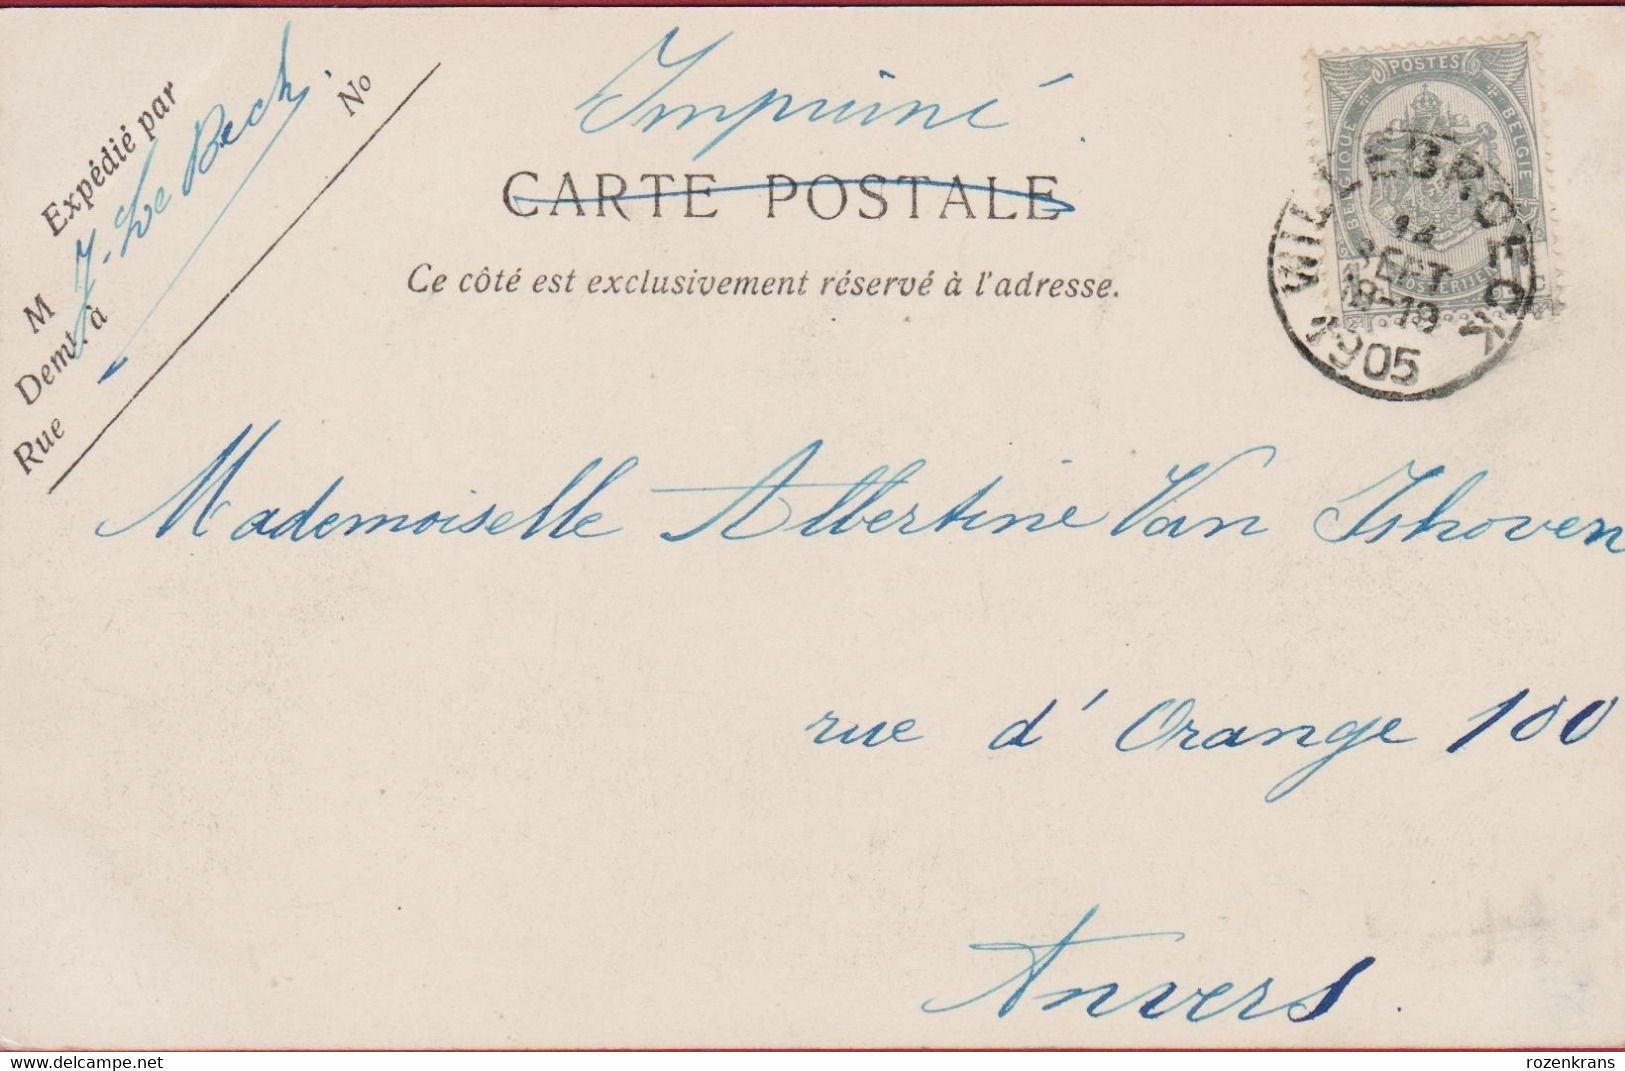 Expédié par
M J. De Beck
Demt. à
Rue No
Imprimé.
CARTE POSTALE
Ce côté est exclusivement réservé à l'adresse.
POSTES
BELGIQUE BELGIE
POSTERIJEN
WILLEBROECK
14
SEPT
18-19
1905
Mademoiselle Albertine Van Ishoven
rue d'Orange 100
Anvers.
mydelcampe.net
rozenkrans